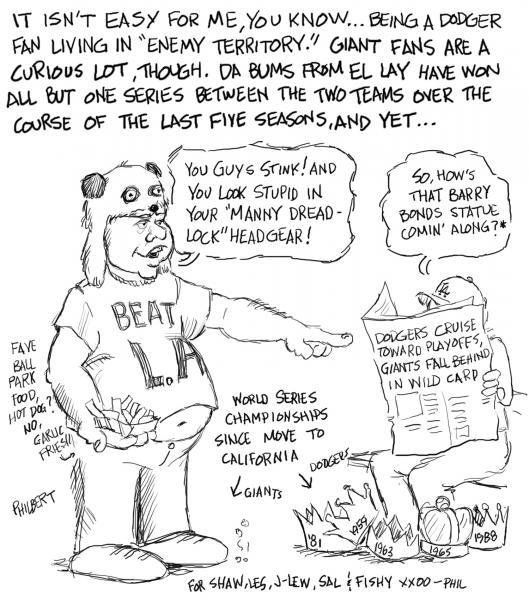 IT ISN'T EASY FOR ME, YOU KNOW... BEING A DODGER
FAN LIVING IN "ENEMY TERRITORY." GIANT FANS ARE A
CURIOUS LOT, THOUGH. DA BUMS FROM EL LAY HAVE WON
ALL BUT ONE SERIES BETWEEN THE TWO TEAMS OVER THE
COURSE OF THE LAST FIVE SEASONS, AND YET...
YOU GUYS STINK! AND
YOU LOOK STUPID IN
YOUR "MANNY DREAD-
LOCK" HEADGEAR!
SO, HOW'S
THAT BARRY
BONDS STATUE
COMIN' ALONG?*
BEAT
L.A
DODGERS CRUISE
TOWARD PLAYOFFS,
GIANTS FALL BEHIND
IN WILD CARD
LA
FAVE
BALL
PARK
FOOD,
HOT DOG?
NO,
GARLIC
FRIES!!
WORLD SERIES
CHAMPIONSHIPS
SINCE MOVE TO
CALIFORNIA
GIANTS
DODGERS
'81
1959
1963
1965
1988
PHILBERT
FOR SHAW, LES, J-LEW, SAL & FISHY XXOO -PHIL